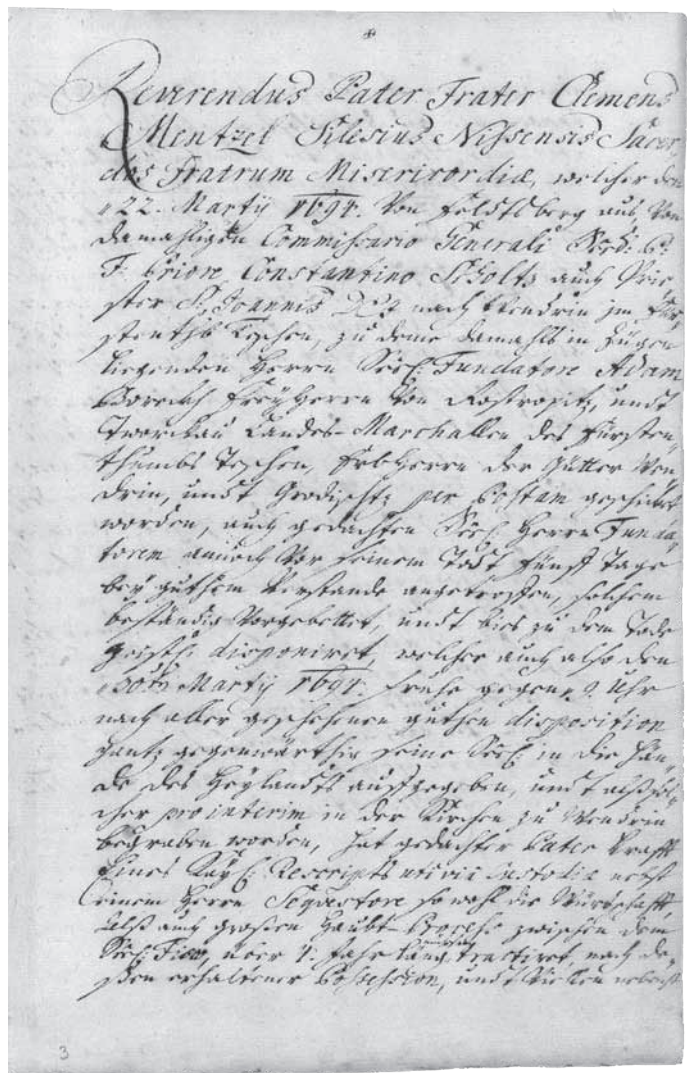 Reverendus Pater Frater Clemens
Mentzel Silesius Nissensis Sacer
dos Fratrum Misericordiæ, welcher den
22. Martÿ 1694. Von Feldtsberg aus, Von
damahligen Commissario Generali Rev: P:
F: Priore Constantino Scholtz auch Prie
ster S: Joannis D: nach Wendrin im Für
stenthb Teschen, zu deme damahls in Zügen
liegenden Herrn Seel: Fundatore Adam
Borek Freÿ Herrn Von Rostropitz, undt
Tworckau Landes-Marchallen des Fürsten
thumbs Teschen, Erb Herrn der Gütter Wen
drin, undt Grodischtz per Postam geschicket
worden, auch gedachten Seel: Herrn Funda
torem annoch Vor seinem Todt fünff Tage
beÿ guthem Verstande angetroffen, solchem
beständig Vorgebettet, undt bies zu dem Tode
geistl: disponiret, welcher auch also den
30ten Martÿ 1694. fruhe gegen 9. Uhr
nach aller geschehenen guthen disposition
gantz gegenwärthig seine Seel: in die Hän
de des Heÿlandts auffgegeben, undt alß sol
cher pro interim in der Kirchen zu Wendrin
begraben worden, hat gedachter Pater Krafft
Eines Kaÿ: Rescripts custodia nebst
Einem Herrn Sequestore sowohl die Würthschafft,
Alß auch großen Haubt-Process zwischen dem
Seel: über 4. Jahr lang tractiret, nach de
ßen erhaltener Possession, undt nebst
3